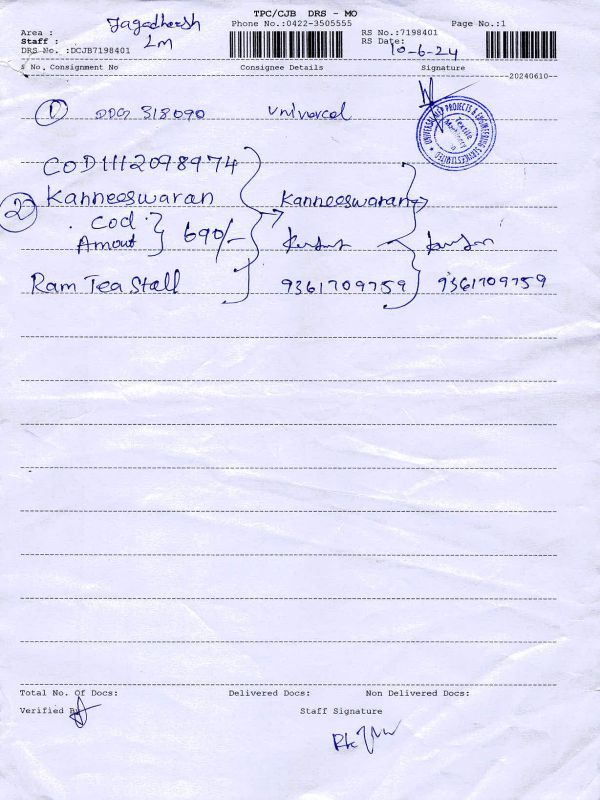 TPC/CJB DRS - MO
Area : Jagadheesh Phone No.:0422-3505555 Page No.:1
Staff : Lm RS No.:7198401
DRS No. :DCJB7198401 RS Date: 10-6-24
S No. Consignment No Consignee Details Signature
20240610
1 318090 Univercel
UNIVERSAL MEP PROJECTS & ENGINEERING SERVICES LIMITED
Textile Machinery
COD1112098974
2 Kanneeswaran Kanneeswaran
Cod
Amout 690/-
Ram Tea Stall 9361709759 9361709759
Total No. Of Docs: Delivered Docs: Non Delivered Docs:
Verified By Staff Signature